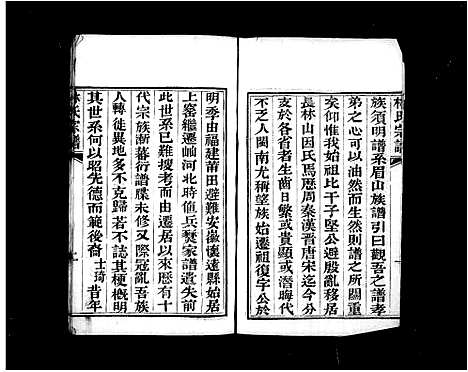 林氏宗譜
族須明譜系眉山族譜引曰觀吾之譜孝
弟之心可以油然而生然則譜之所關重
矣仰惟我始祖堅公避殷亂移居
長林山因氏焉歷周秦漢晋唐宋迄今分
支於各省者生齒日繁或貴顯或潛晦代
不乏人閩南尤稱望族始遷祖復字公於
明季由福建莆田避難安徽懷遠縣始居
上窰繼遷峴河北時値兵燹家譜遺失前
此世系已難搜考而由遷居以來歷有十
代宗族漸蕃衍譜牒未修又際冦亂吾族
人轉徙異地多不克歸若不誌其梗概明
其世系何以昭先德而範後裔士琦昔年
林氏宗譜